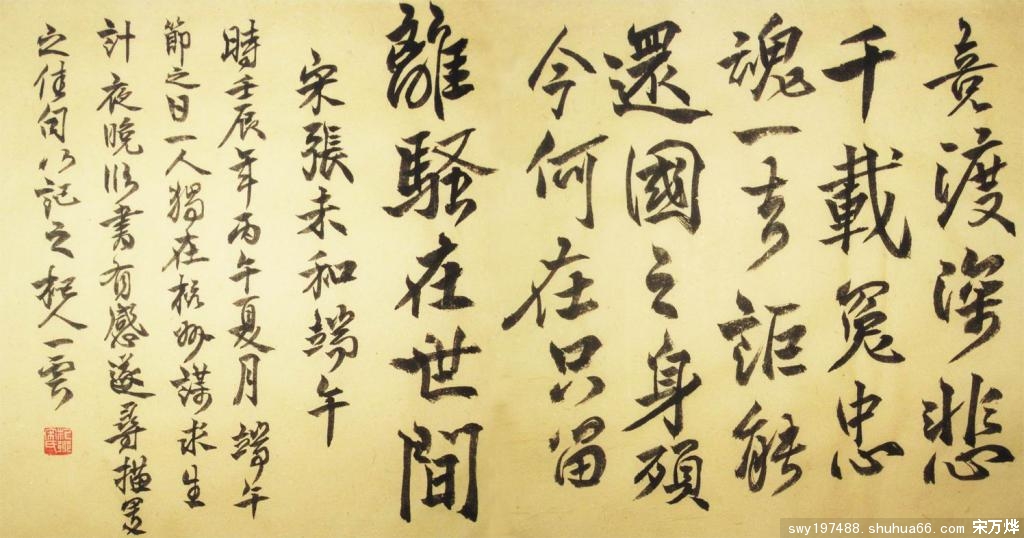 竞渡深悲
千載冤忠
魂一去詎能
還國之身殞
今何在只留
離騷在世間
宋張耒和端午
時壬辰年丙午夏月端午
節之日一人獨在杭州謀求生
計夜晚臨書有感遂尋描寫
之佳句以記之人一雲
swy197488. shuhua66. com 宋万烨